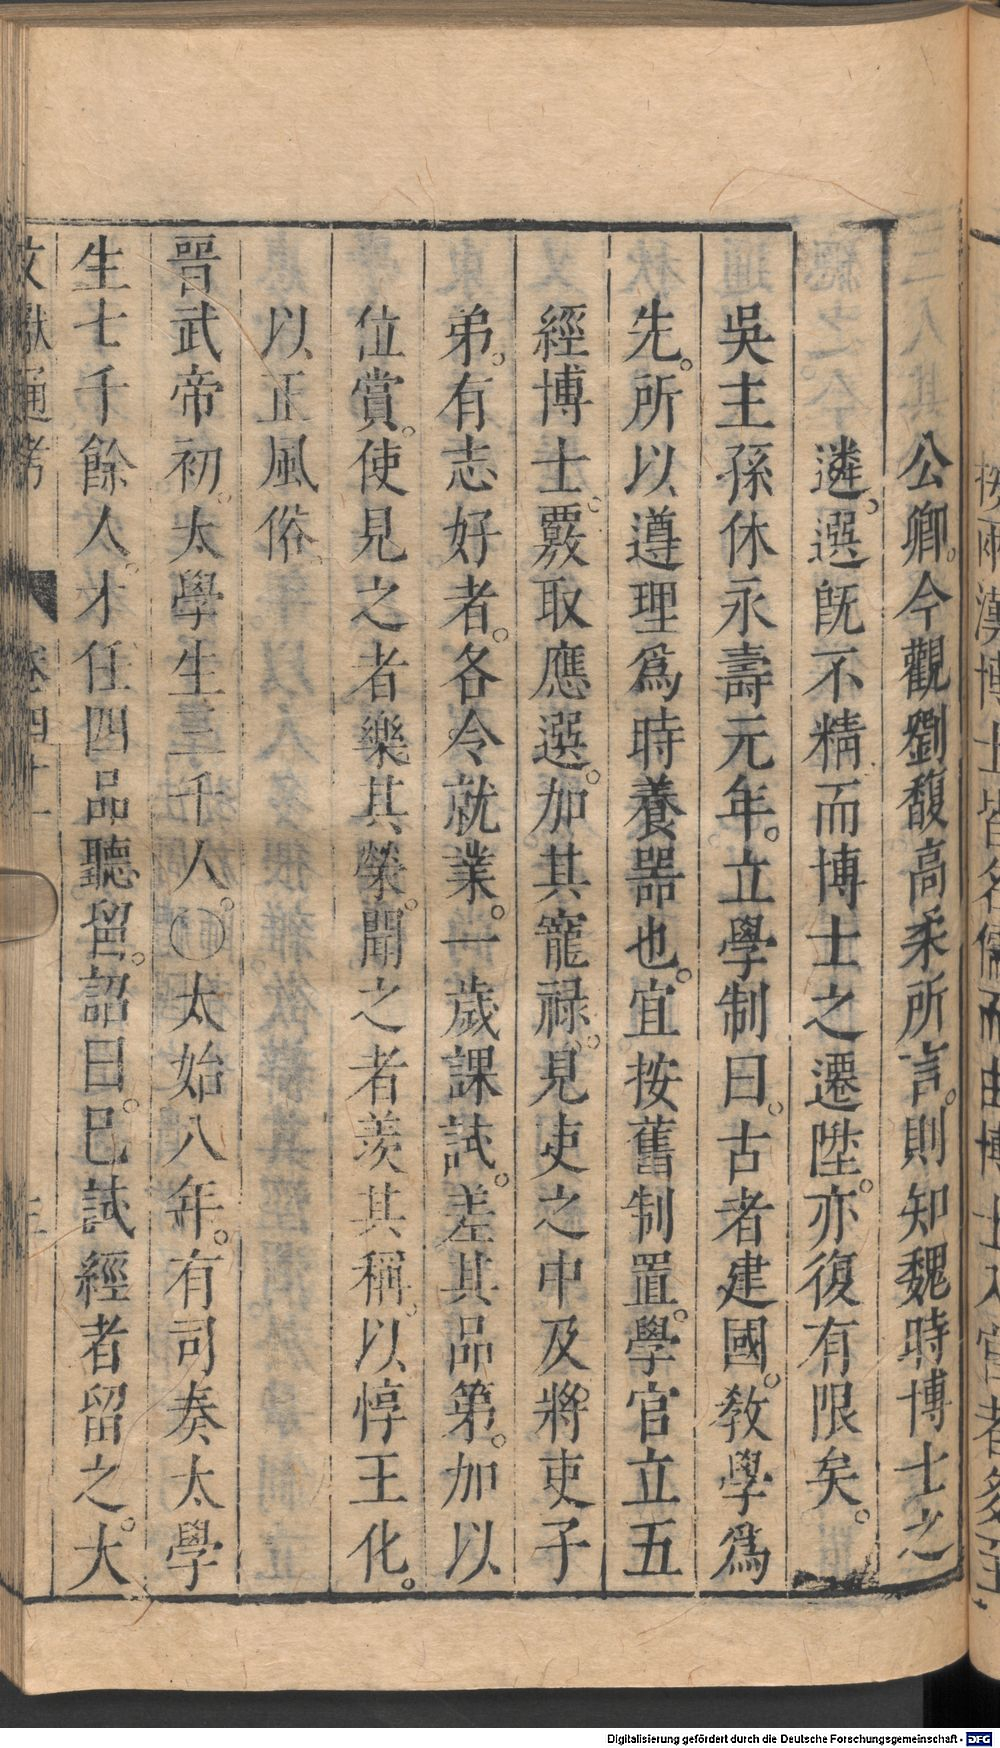 公卿。今觀劉馥高柔所言。則知魏時博士之
遴。選旣不精而博士之遷陞。亦復有限矣。
吳主孫休永壽元年。立學制曰。古者建國。敎學爲
先。所以遵理爲時養器也。宜按舊制置。學官立五
經博士。覈取應選。加其寵祿。見吏之中及將吏子
弟。有志好者。各令就業。一歲課試。差其品第。加以
位賞。使見之者樂其榮。聞之者羨其稱。以惇王化。
以正風俗。
晋武帝初。太學生三千人。○太始八年。有司奏太學
生七千餘人。才任四品聽留。詔曰。巳試經者留之。大
文獻通考 卷四十一
Digitalisierung gefördert durch die Deutsche Forschungsgemeinschaft - DFG